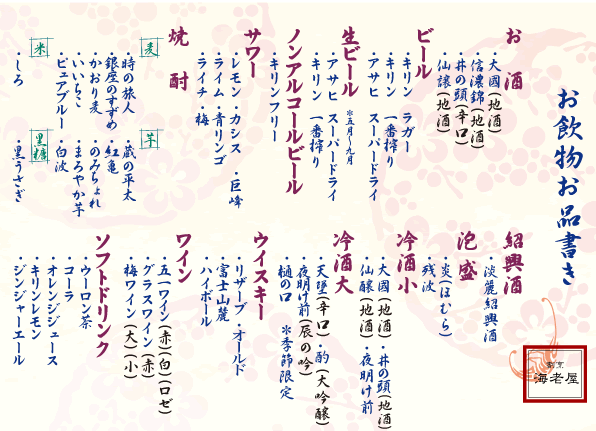 お飲物お品書き
お酒
・大國(地酒)
・信濃錦(地酒)
・井の頭(辛口)
・仙譲(地酒)
ビール
・キリン ラガー
・キリン 一番搾り
・アサヒ スーパードライ
生ビール ※五月〜九月
・アサヒ スーパードライ
・キリン 一番搾り
ノンアルコールビール
・キリンフリー
サワー
・レモン・カシス・巨峰
・ライム・青リンゴ
・ライチ・梅
焼酎
麦
・時の旅人
・銀座のすずめ
・かおり麦
・いいちこ
・ピュアブルー
芋
・蔵の平太
・紅亀
・のみちょれ
・まろやか芋
・白波
米
・しろ
黒糖
・黒うさぎ
紹興酒
・淡麗紹興酒
泡盛
・炎(ほむら)
・残波
冷酒小
・大國(地酒)・井の頭(地酒)
・仙醸(地酒)・夜明け前
冷酒大
・天墜(辛口)・酌(大吟醸)
・夜明け前(辰の吟)
・樋の口 ※季節限定
ウイスキー
・リザーブ・オールド
・富士山麓
・ハイボール
ワイン
・五一ワイン(赤)(白)(ロゼ)
・グラスワイン(赤)
・梅ワイン(大)(小)
ソフトドリンク
・ウーロン茶
・コーラ
・オレンジジュース
・キリンレモン
・ジンジャーエール
割烹
海老屋